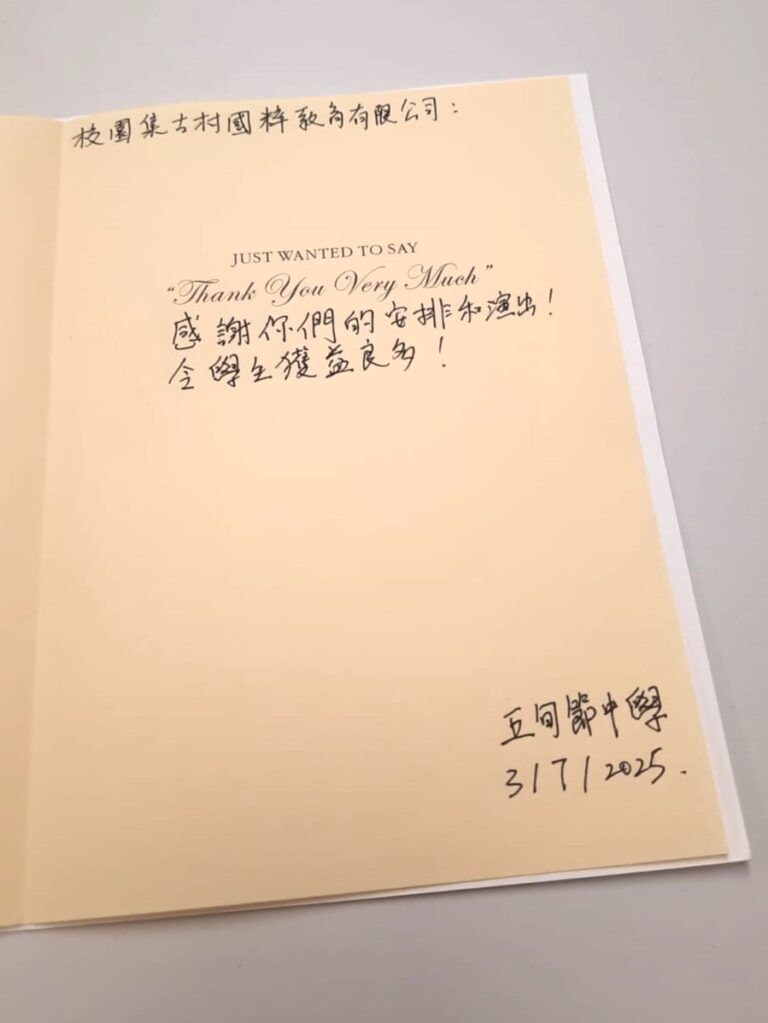 校園集古村國粹教育有限公司：
JUST WANTED TO SAY
“Thank You Very Much”
感謝你們的安排和演出！
令學生獲益良多！
五旬節中學
3/7/2025.